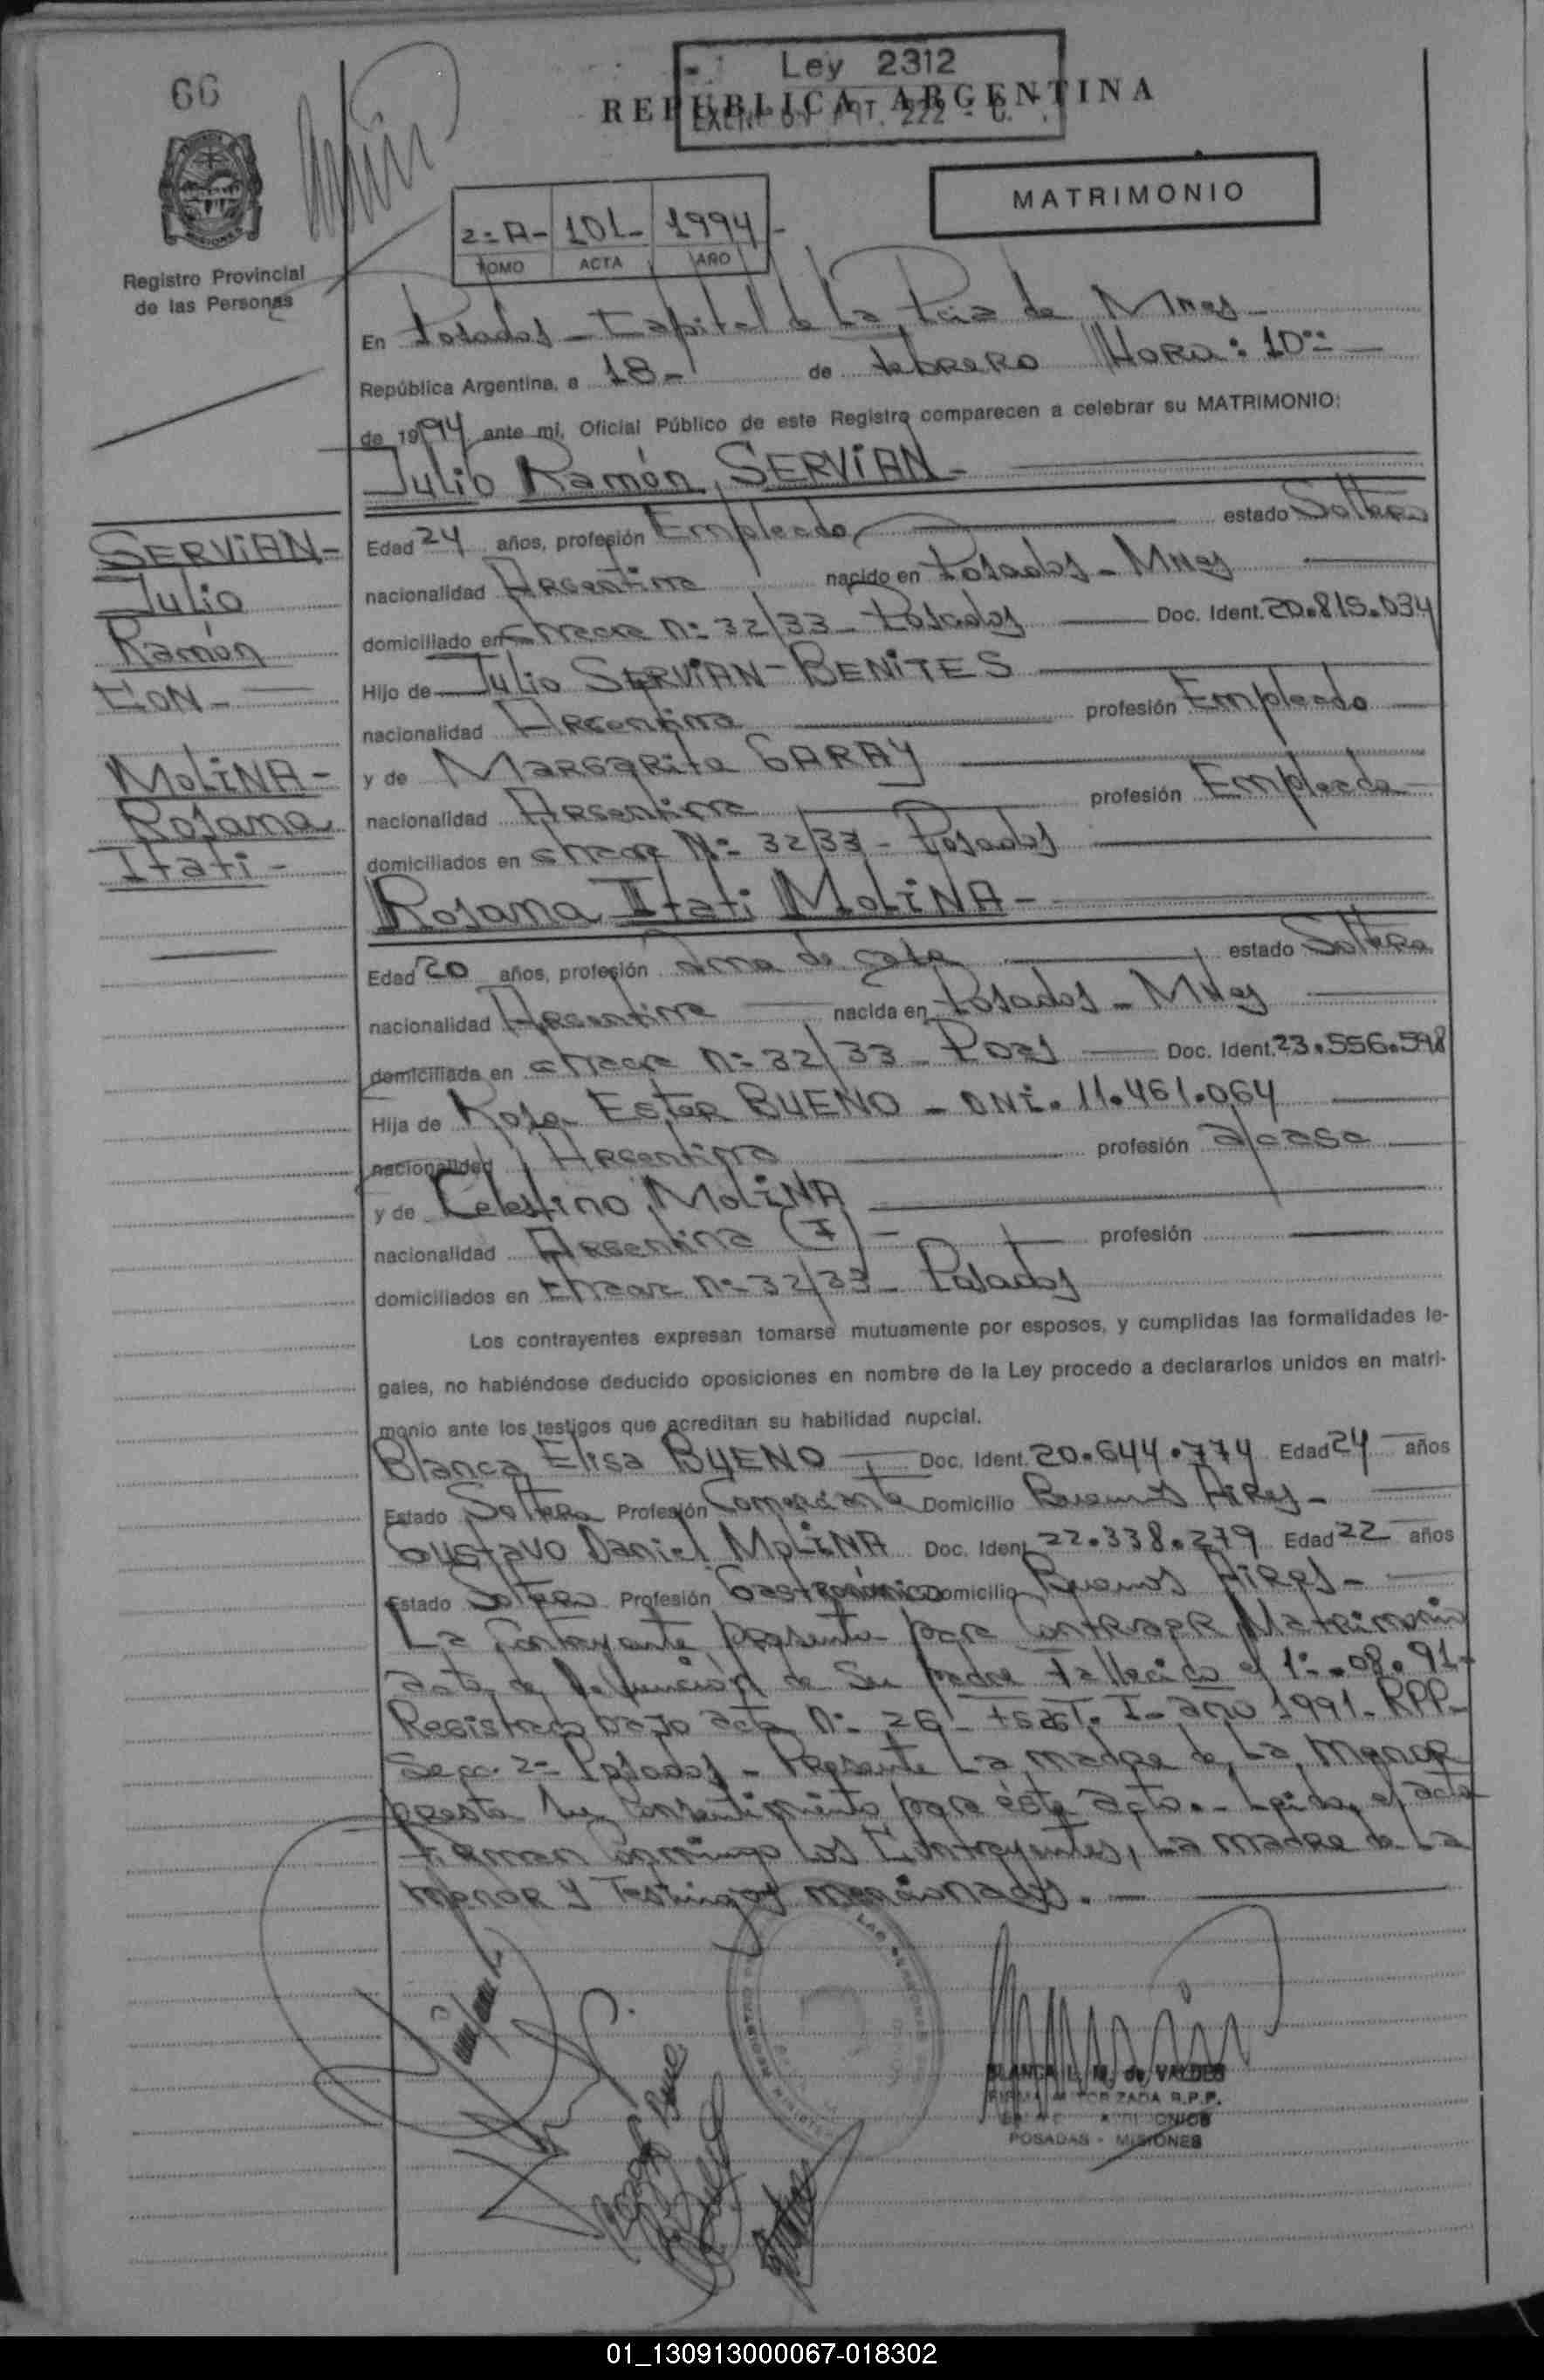 66
Ley 2312
REPUBLICA ARGENTINA
MATRIMONIO
2º A- 101- 1994-
TOMO ACTA AÑO
Registro Provincial
de las Personas
En Posadas - Capital de La Pcia de Mnes-
República Argentina, a 18- de Febrero Hora: 10
de 1994 ante mi, Oficial Público de este Registro comparecen a celebrar su MATRIMONIO:
Julio Ramón SERViAN-
Edad 24 años, profesión Empleado estado Soltero
nacionalidad Argentina nacido en Posadas - Mnes
domiciliado en chacra nº 32/33 - Posadas Doc. Ident. 20.815.034
Hijo de Julio SERViAN - BENiTES
nacionalidad Argentina profesión Empleado
y de MARGARita GARAY
nacionalidad Argentina profesión Empleada
domiciliados en chacra Nº 32/33 - Posadas
Rosana Itati MOLiNA-
Edad 20 años, profesión ama de casa estado Soltera
nacionalidad Argentina nacida en Posadas - Mnes
domiciliada en chacra nº 32/33 - Pdas Doc. Ident. 23.556.598
Hija de Rosa Ester BUENO - DNi. 11.461.064
nacionalidad Argentina profesión a/casa
y de Celestino MOLiNA
nacionalidad Argentina (F) - profesión
domiciliados en chacra nº 32/33 - Posadas
SERViAN-
Julio
Ramón
CON-
MOLiNA-
Rosana
Itati-
Los contrayentes expresan tomarse mutuamente por esposos, y cumplidas las formalidades le-
gales, no habiéndose deducido oposiciones en nombre de la Ley procedo a declararlos unidos en matri-
monio ante los testigos que acreditan su habilidad nupcial.
Blanca Elisa BUENO Doc. Ident. 20.644.774 Edad 24 años
Estado Soltera Profesión Comerciante Domicilio Buenos Aires-
Gustavo Daniel MOLiNA Doc. Ident. 22.338.279 Edad 22 años
Estado Soltero Profesión Gastronómico Domicilio Buenos Aires-
La Contrayente presenta para Contraer Matrimonio
acta de defunción de Su padre fallecido el 1º.08.91-
Registrado bajo acta nº 26 - T. I- año 1991- RPP-
Secc. 2º Posadas - Presente La madre de La menor
presta su Consentimiento para éste acto.- Leida el acta
firman Conmigo Los Contrayentes, La madre de La
menor y Testigos mencionados.-
BLANCA L. M. de VALDES
FIRMA AUTORIZADA R.P.P.
POSADAS - MISIONES
01_130913000067-018302